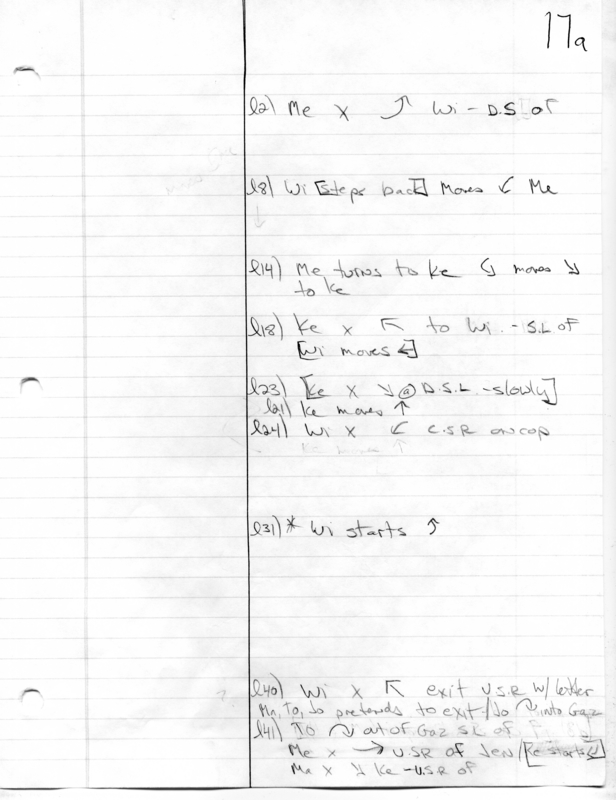 17a
l2) Me x ⤴ Wi - D.S of
l8) Wi [steps back] moves ↙ Me
l14) Me turns to Ke ↺ moves ↘
to Ke
l18) Ke x ↖ to Wi. - S.L of
[Wi moves ←]
l23) [Ke x ↘ @ D.S.L - slowly]
l21) Ke moves ↑
l24) Wi x ↙ C.S R on cop
l31) * Wi starts ↑
l40) Wi x ↖ exit U.S.R w/ letter
Mn, To, Jo pretends to exit / Jo ↷ into Gaz
l41) To ↷ out of Gaz SL of
Me x → U.SR of Jen /[Ke starts ↙]
Mn x ↘ Ke - U.S.R of